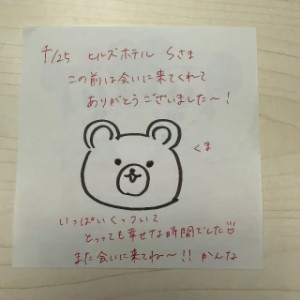 4/25 ヒルズホテル Sさま
この前は会いに来てくれて
ありがとうございました〜!
くま
いっぱいくっついて
とっても幸せな時間でした
また会いに来てね〜!! かんな